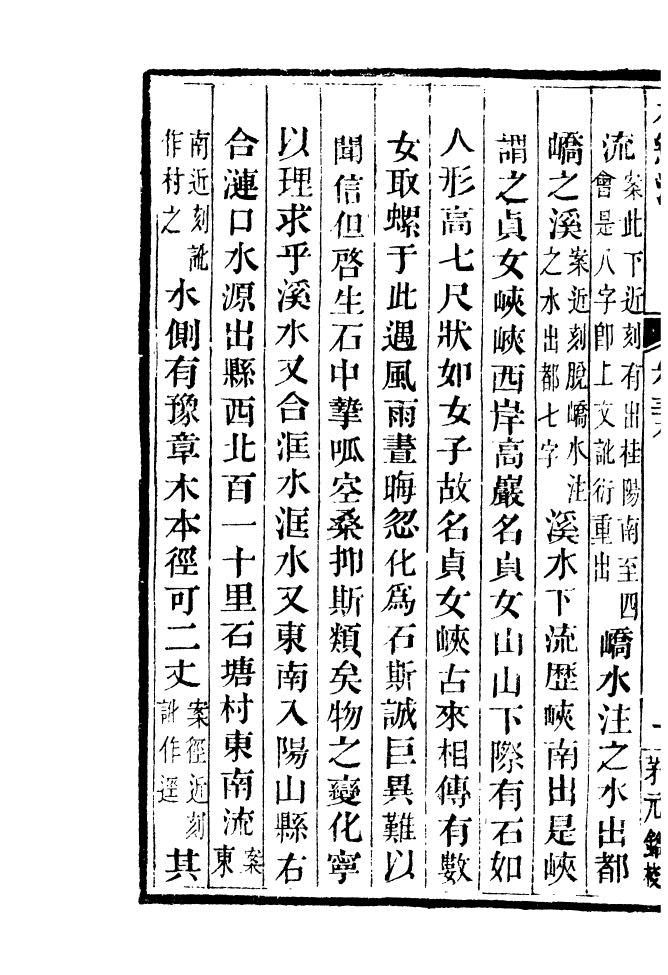 流案此下近刻有出桂陽南至四會是八字卽上文訛衍重出嶠水注之水出都
嶠之溪案近刻脫嶠水注之水出都七字溪水下流歷峽南出是峽
謂之貞女峽峽西岸高巖名貞女山山下際有石如
人形高七尺狀如女子故名貞女峽古來相傳有數
女取螺于此遇風雨晝晦忽化爲石斯誠巨異難以
聞信但啓生石中摯呱空桑抑斯類矣物之變化寧
以理求乎溪水又合洭水洭水又東南入陽山縣右
合漣口水源出縣西北百一十里石塘村東南流案東
南近刻訛作村之水側有豫章木本徑可二丈案徑近刻訛作逕其